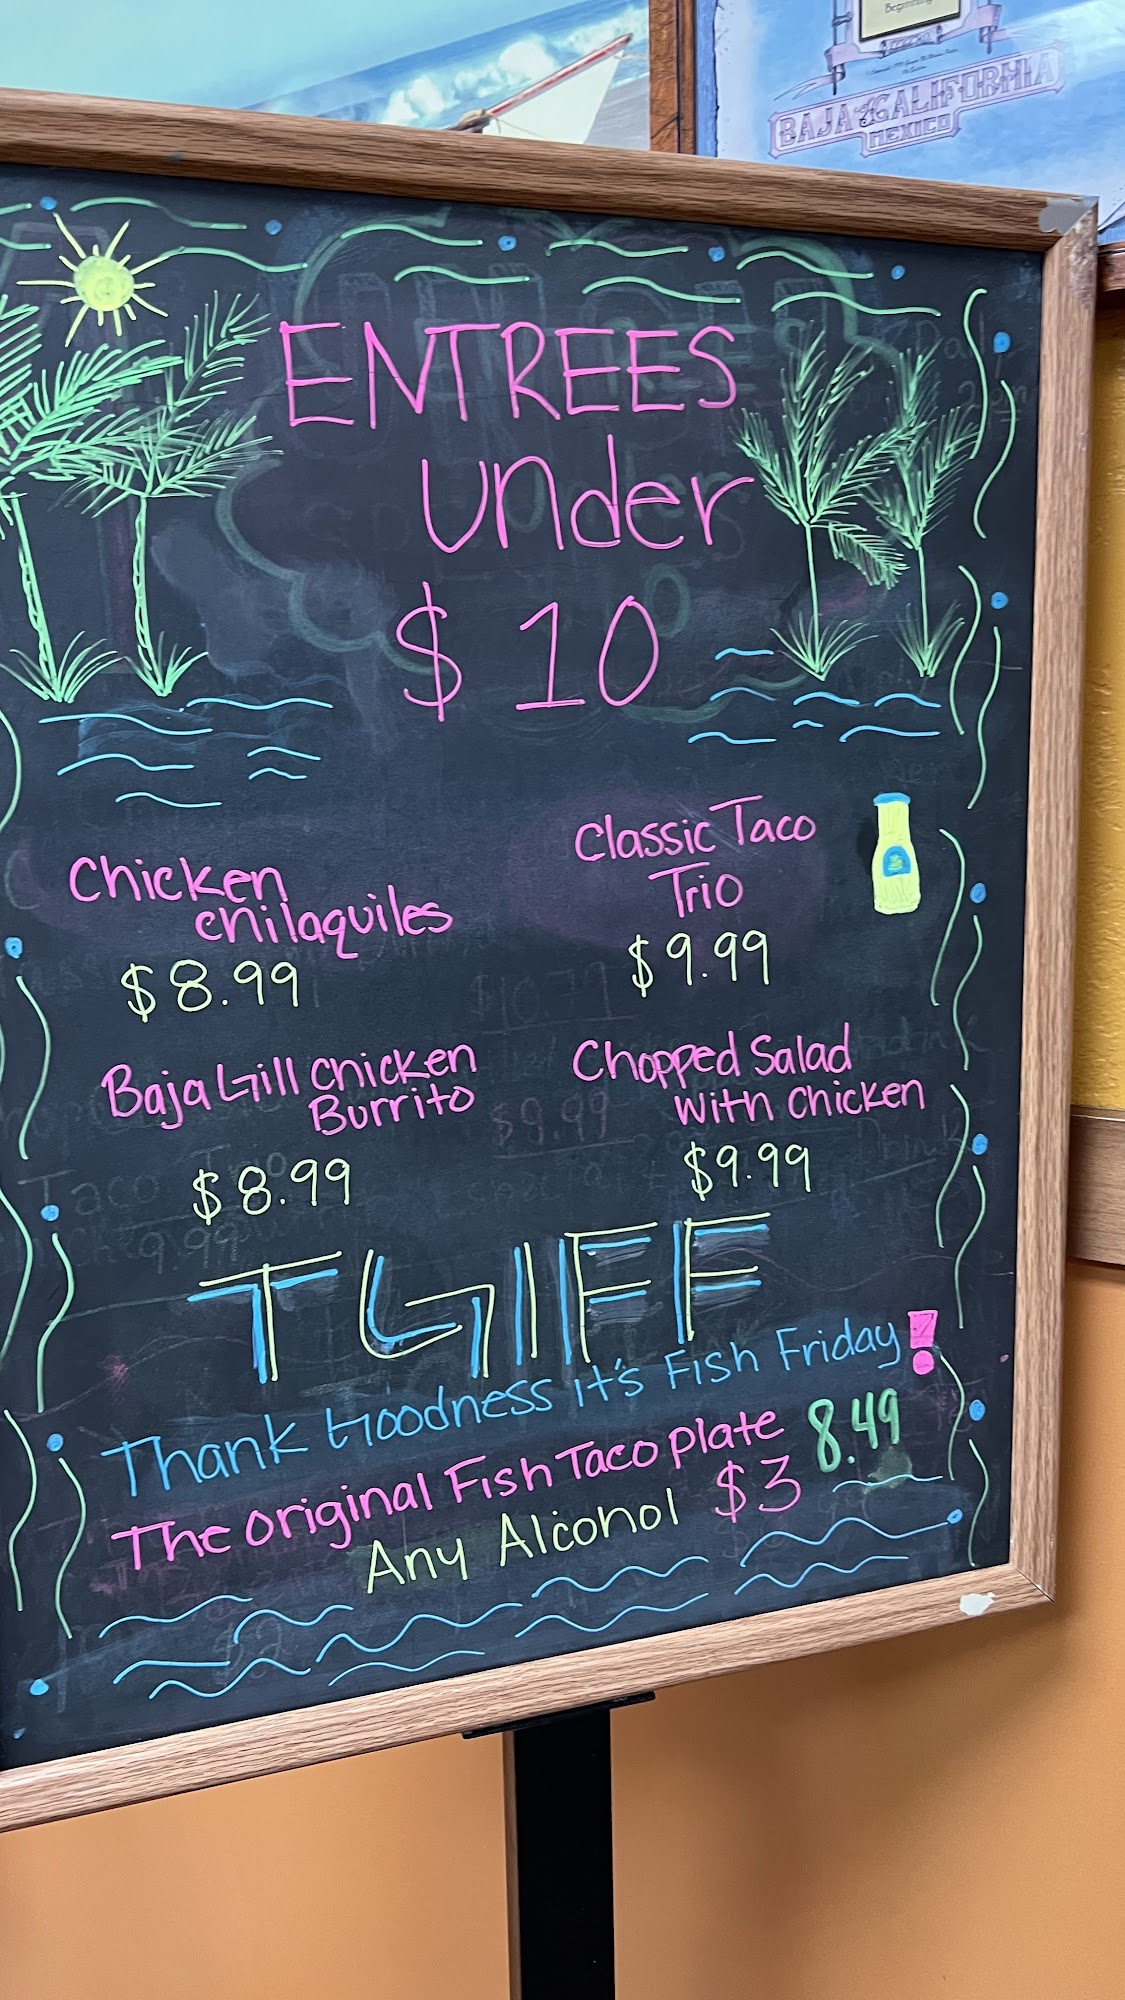 Beginning
BAJA CALIFORNIA
MEXICO
ENTREES
under
$10
Chicken
chilaquiles
$8.99
Classic Taco
Trio
$9.99
Baja Gill Chicken
Burrito
$8.99
Chopped Salad
with Chicken
$9.99
TGIFF
Thank Goodness it's Fish Friday!
The Original Fish Taco plate 8.49
Any Alcohol $3